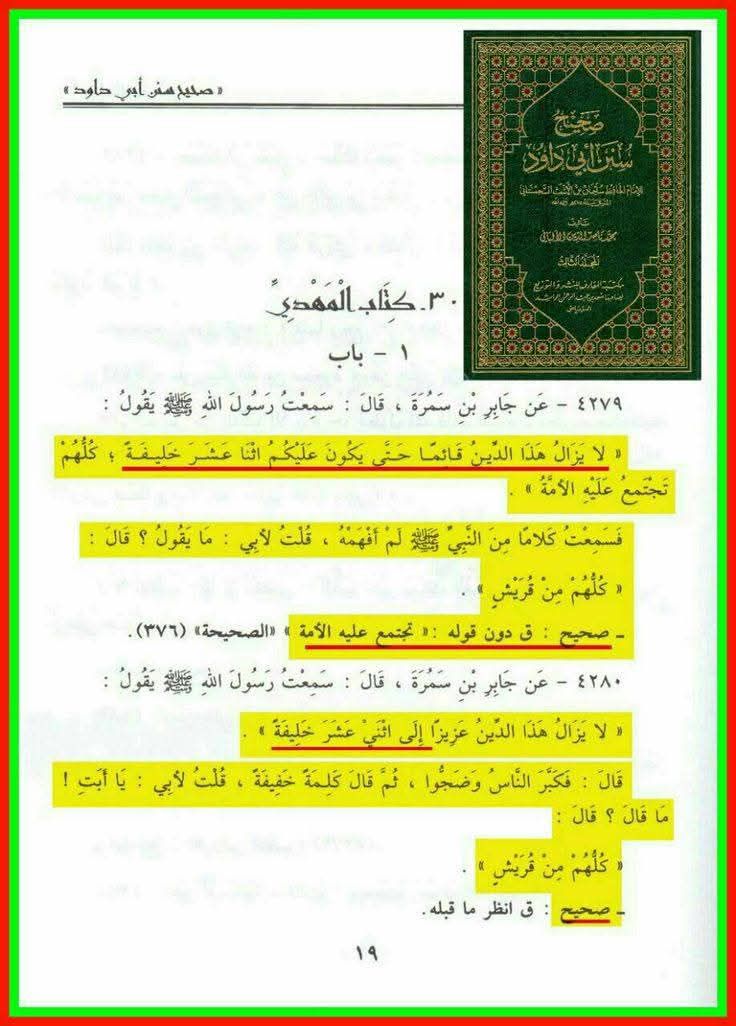 « صحيح سنن أبي داود »
صَحِيحُ
سُنَنِ أَبِي دَاوُد
للإمام الحافظ سليمان بن الأشعث السجستاني
تأليف
محمد ناصر الدين الألباني
المجلد الثالث
مكتبة المعارف للنشر والتوزيع
٣٠. كتَاب الْمَهْدِيِّ
١ - باب
٤٢٧٩ - عَن جَابِرِ بْنِ سَمُرَةَ ، قَالَ : سَمِعْتُ رَسُولَ اللهِ ﷺ يَقُولُ :
« لا يَزَالُ هَذَا الدِّينُ قَائِمًا حَتَّى يَكُونَ عَلَيْكُمُ اثْنَا عَشَرَ خَلِيفَةً ؛ كُلُّهُمْ
تَجْتَمعُ عَلَيْهِ الأمَّةُ » .
فَسَمِعْتُ كَلامًا مِنَ النَّبِيِّ ﷺ لَمْ أَفْهَمْهُ ، قُلْتُ لأبِي : مَا يَقُولُ ؟ قَالَ :
« كُلُّهُمْ مِنْ قُرَيْشٍ » .
ـ صحيح : ق دون قوله :« تجتمع عليه الأمة » «الصحيحة» (٣٧٦).
٤٢٨٠ - عَن جَابِرِ بْنِ سَمُرَةَ ، قَالَ : سَمِعْتُ رَسُولَ اللهِ ﷺ يَقُولُ :
« لا يَزَالُ هَذَا الدِّينُ عَزِيزًا إِلَى اثْنَيْ عَشَرَ خَلِيفَةً » .
قَالَ : فَكَبَّرَ النَّاسُ وَضَجُّوا ، ثُمَّ قَالَ كَلِمَةً خَفِيفَةً ، قُلْتُ لأبِي : يَا أبَتِ !
مَا قَالَ ؟ قَالَ :
« كُلُّهُمْ مِنْ قُرَيْشٍ » .
ـ صحيح : ق انظر ما قبله.
١٩